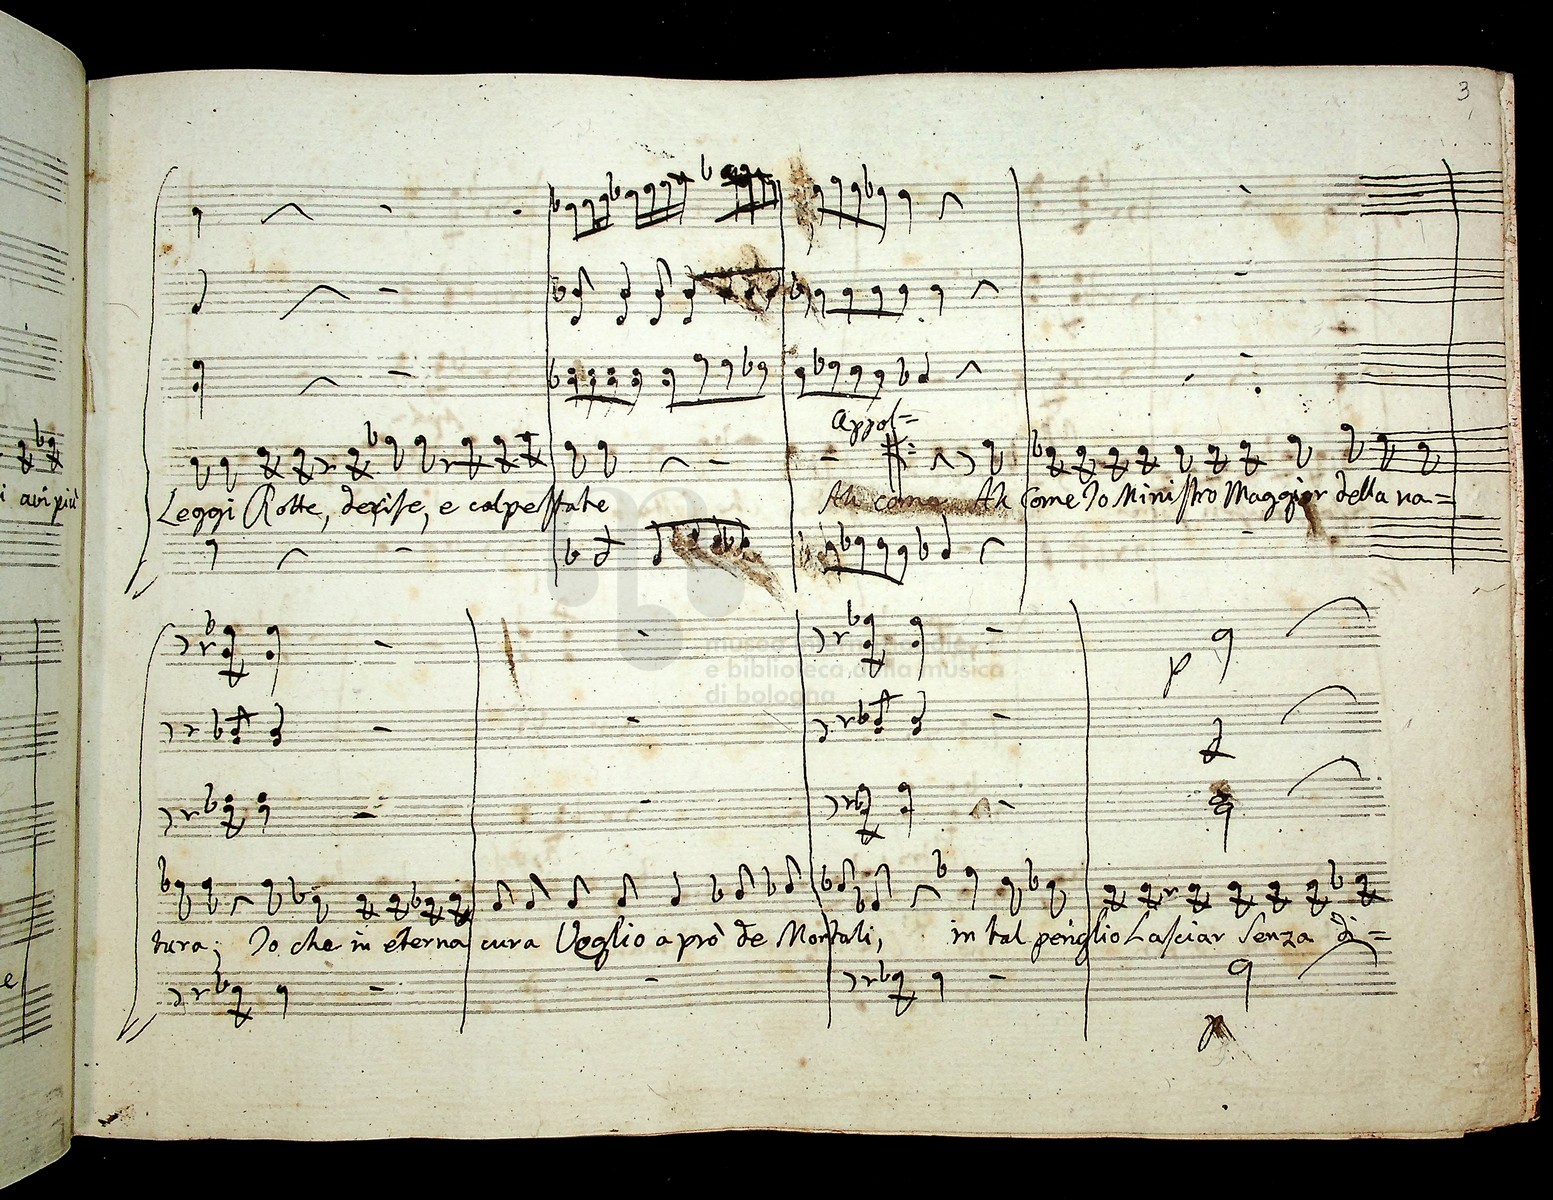 3
i avi più
Appol=
Leggi Rotte, decise, e calpestate Ah come Ah Come Io Ministro Maggior della na=
museo internazionale
e biblioteca della musica
di bologna
p
tura; Io che in eterna cura Veglio a prò de Mortali, in tal periglio Lasciar Senza di=
e
p